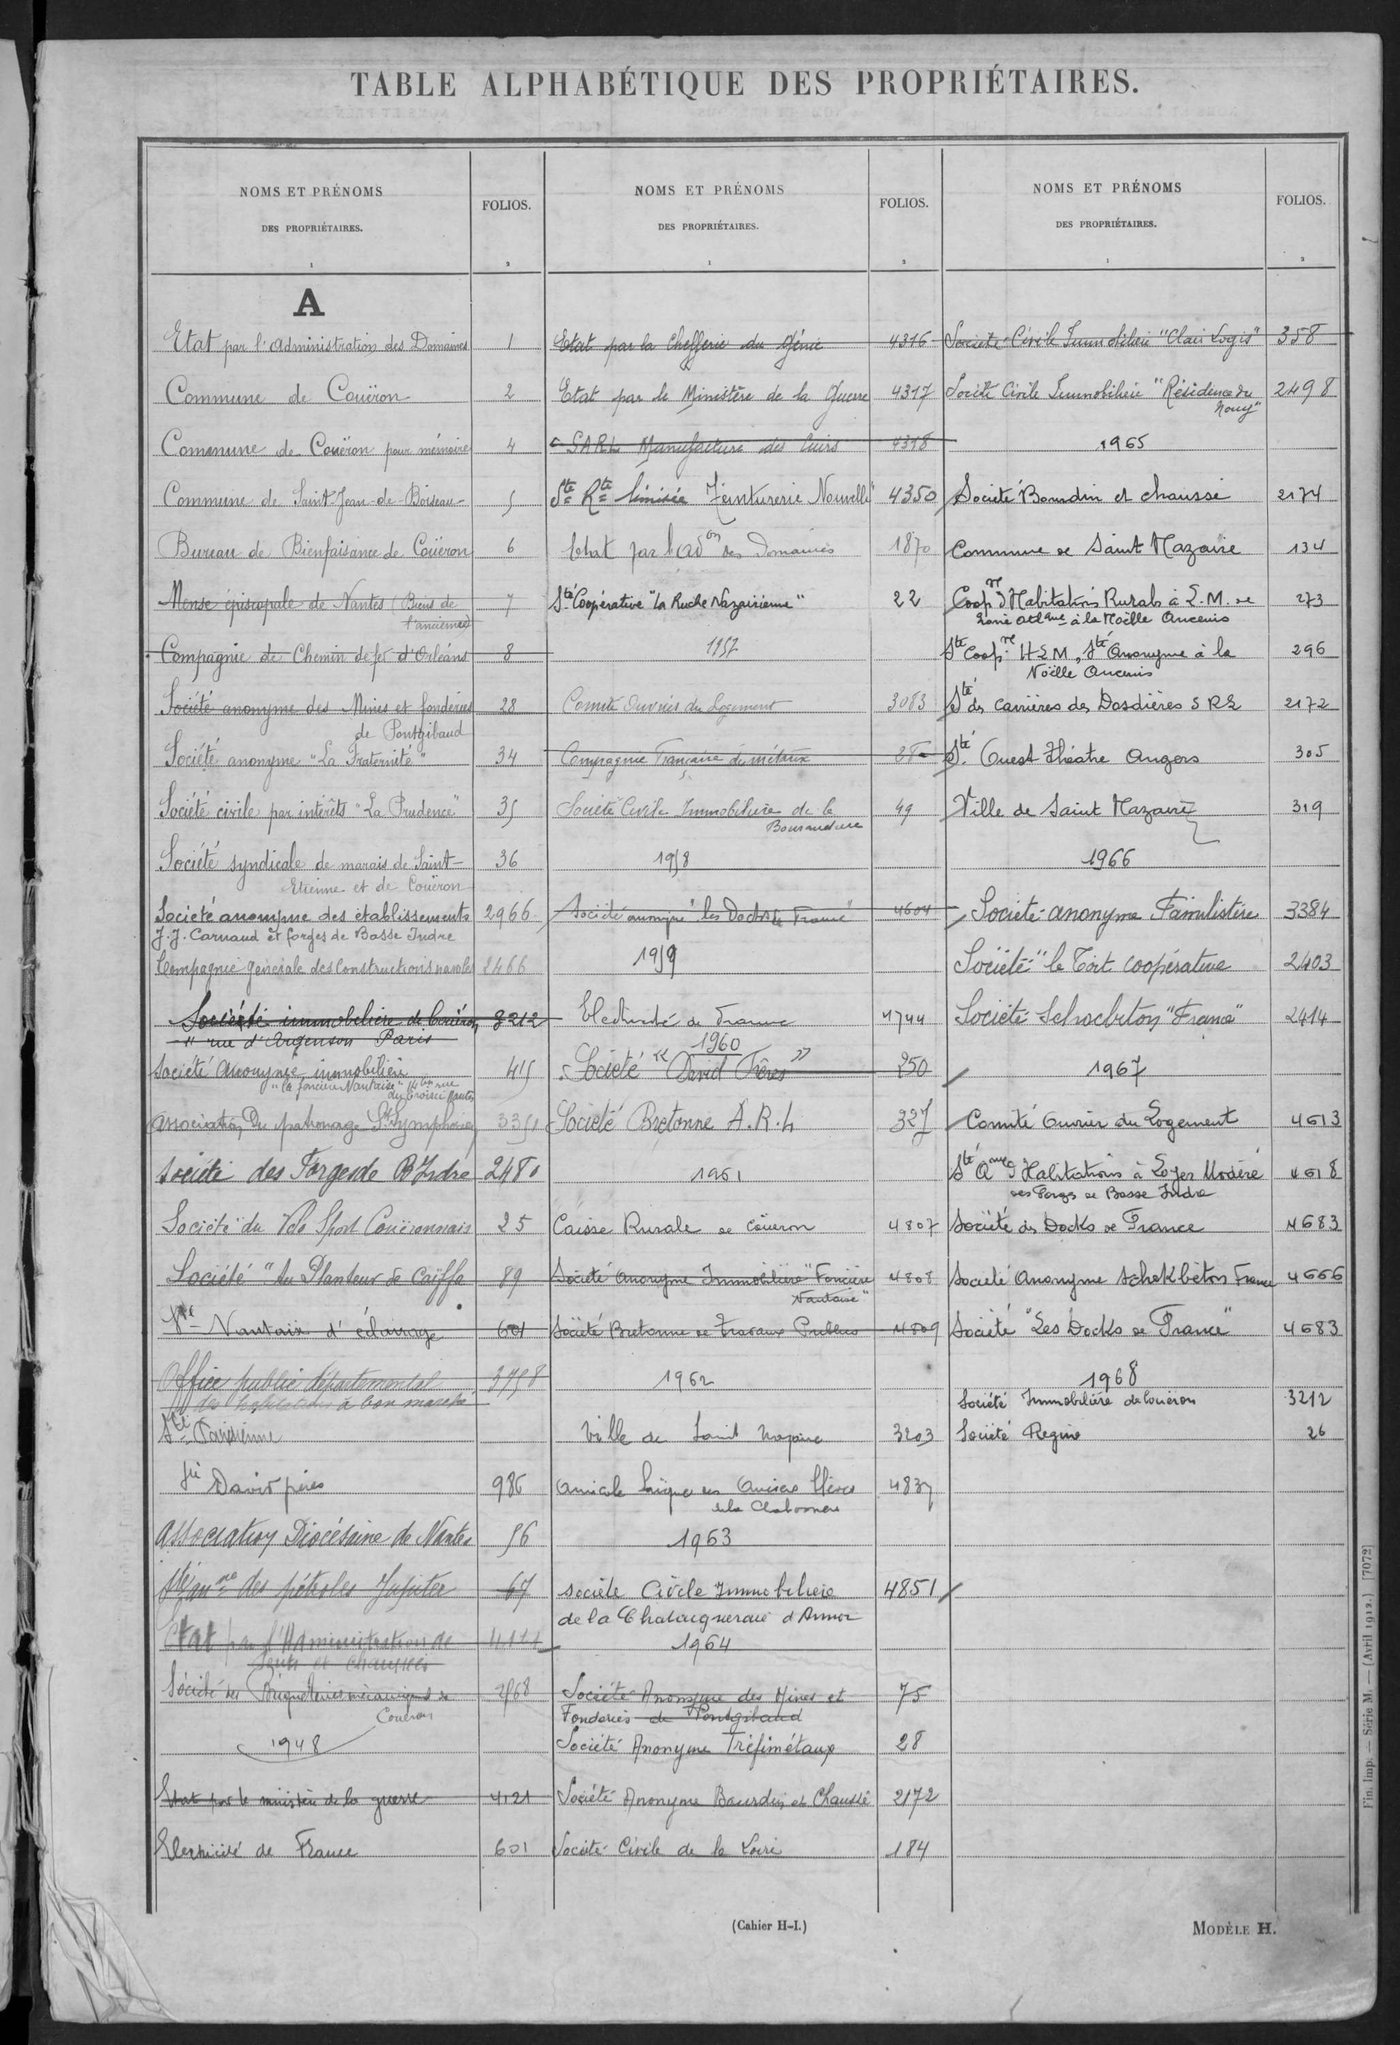 TABLE ALPHABÉTIQUE DES PROPRIÉTAIRES.
NOMS ET PRÉNOMS
DES PROPRIÉTAIRES.
1
FOLIOS.
2
NOMS ET PRÉNOMS
DES PROPRIÉTAIRES.
1
FOLIOS.
2
NOMS ET PRÉNOMS
DES PROPRIÉTAIRES.
1
FOLIOS.
2
A
Etat par l'administration des Domaines 1
Commune de Couëron 2
Commune de Couëron pour mémoire 4
Commune de Saint-Jean-de-Boiseau 5
Bureau de Bienfaisance de Couëron 6
Mense épiscopale de Nantes (Biens de 7
l'ancienne)
Compagnie de Chemin de fer d'Orléans 8
Société anonyme des Mines et fonderies 28
de Pontgibaud
Société anonyme "La Fraternité" 34
Société civile par intérêts "La Prudence" 35
Société syndicale de marais de Saint- 36
Etienne et de Couëron
Société anonyme des établissements 2966
J.J. Carnaud et forges de Basse Indre
Compagnie générale des constructions navales 2466
Société immobilière de Couëron 3212
11 rue d'Argenson Paris
Société Anonyme immobilière 415
"la foncière Nantaise" rue
Association du patronage St Symphorien 3351
Société des Forges de B Indre 2480
Société du Vélo Sport Couëronnais 25
Société "du Planteur de Caïffa 89
Sté Nantaise d'éclairage 601
Office public départemental 3758
des habitations à bon marché
Sté Parisienne
Sté David frères 986
Association Diocésaine de Nantes 56
Sté an me des pétroles Jupiter 67
Etat par l'Administration de
Ponts et chaussées
Société des Briqueteries mécaniques de
Couëron
1948
Etat par le ministère de la guerre 4121
Electricité de France 601
Etat par la Chefferie du Génie 4316
Etat par le Ministère de la Guerre 4317
SARL Manufacture des cuirs 4318
Sté Rté limitée Teinturerie Nouvelle" 4350
Etat par l'Ad on des Domaines 1870
Sté Coopérative "La Ruche Nazairienne" 22
1957
Comité Ouvrier du Logement 3083
Compagnie Française de métaux
Société Civile Immobilière de la 49
1958
Société anonyme "les Docks de France" 4604
1959
Electricité de France 4744
1960
Société "David Frères" 250
Société Bretonne A.R.L 327
1961
Caisse Rurale de Couëron 4807
Société Anonyme Immobilière "Foncière 4808
Nantaise"
Société Bretonne de Travaux Publics 4809
1962
Ville de Saint Nazaire 3203
Amicale laïque des Anciens Elèves 4837
de la Chabossière
1963
Société Civile Immobilière 4851
de la Chataigneraie d'Armor
1964
Société Anonyme des Mines et 75
Fonderies de Pontgibaud
Société Anonyme Tréfimétaux 28
Société Anonyme Bourdin et Chaussé 2172
Société Civile de la Loire 184
Société Civile Immobilière "Clair Logis" 358
Société Civile Immobilière "Résidence du 2498
1965
Société Bourdin et chaussé 2174
Commune de Saint Nazaire 134
Coop ve d'Habitations Rurales à L.M. de 273
Loire Atl que à la Noëlle Ancenis
Sté Coop ve H L M, Sté Anonyme à la 296
Noëlle Ancenis
Sté des carrières des Dosdières S R L 2172
Sté Ouest Théatre Angers 305
Ville de Saint Nazaire 319
1966
Société anonyme Familistère 3384
Société "le Toit coopérative 2403
Société Schocbéton "France" 2414
1967
Comité Ouvrier du Logement 4613
Sté A me d'Habitations à Loyer Modéré 4618
des Forges de Basse Indre
Société des Docks de France 4683
Société Anonyme Schokbéton France 4666
Société "Les Docks de France" 4683
1968
Société Immobilière de Couëron 3212
Société Regino 26
(Cahier H-I.)
MODÈLE H.
Fin. Imp. — Série M. — (Avril 1912.) [7072]